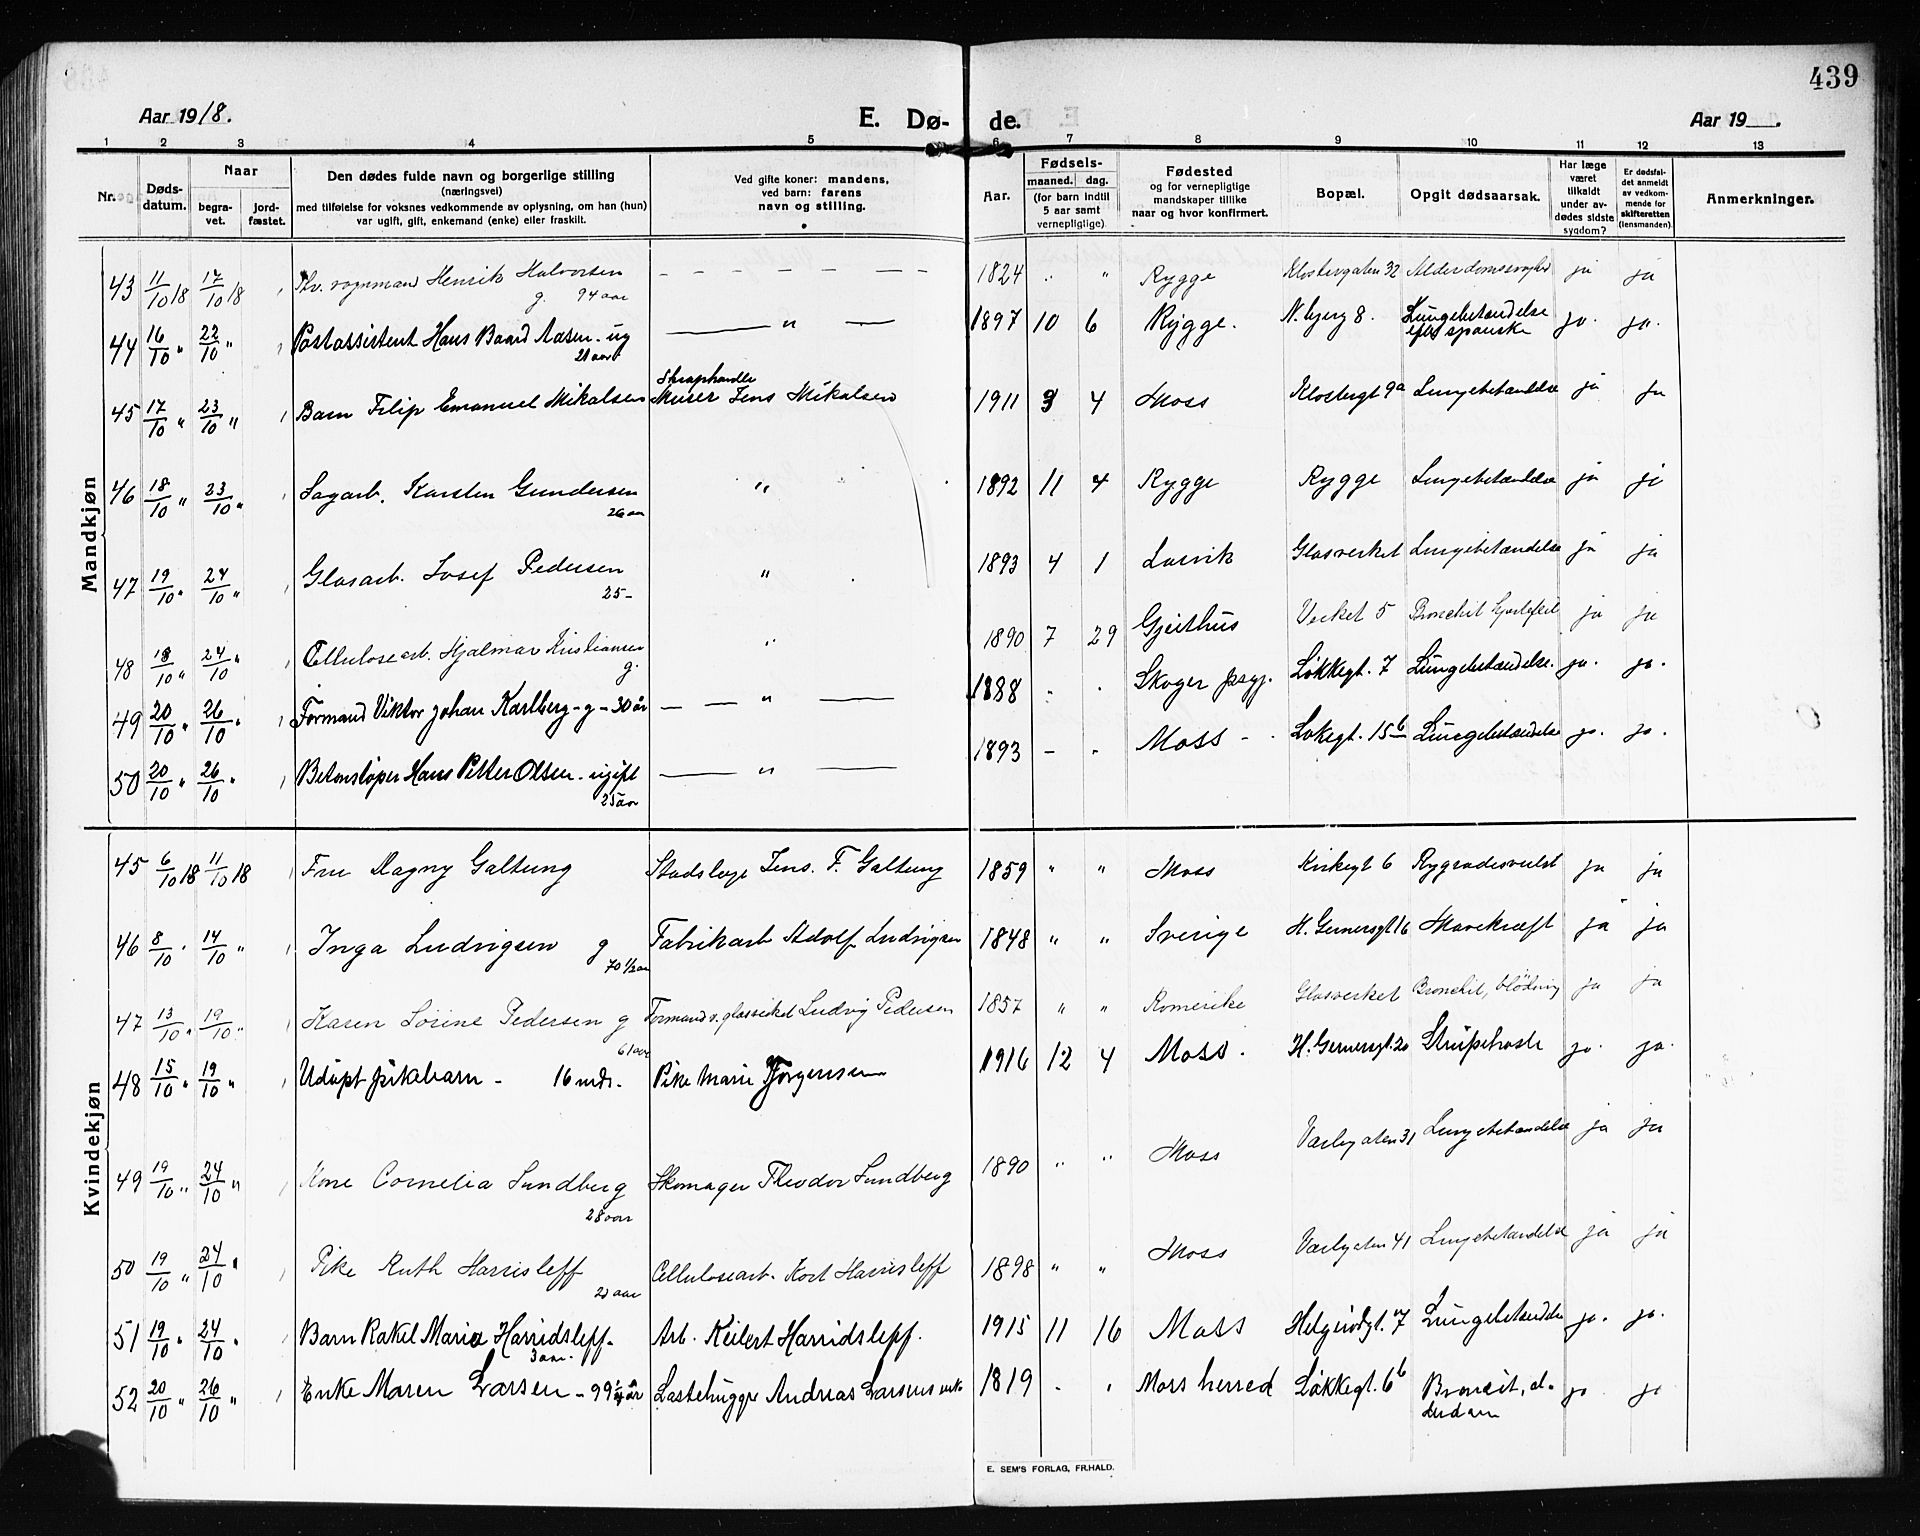 439
Aar 1918. E. Dø- de. Aar 19 .
1 2 3 4 5 6 7 8 9 10 11 12 13
Nr. Døds-datum. Naar begra-vet. jord-fæstet. Den dødes fulde navn og borgerlige stilling (næringsvei) med tilføielse for voksnes vedkommende av oplysning, om han (hun) var ugift, gift, enkemand (enke) eller fraskilt. Ved gifte koner: mandens, ved barn: farens navn og stilling. Aar. Fødsels- maaned. dag. (for barn indtil 5 aar samt vernepligtige) Fødested og for vernepligtige mandskaper tillike naar og hvor konfirmert. Bopæl. Opgit dødsaarsak. Har læge været tilkaldt under av-dødes sidste sygdom? Er dødsfal-det anmeldt av vedkom-mende for skifteretten (lensmanden). Anmerkninger.
Mandkjøn
43 11/10 18 17/10 18 vognmand Henrik Halvorsen g. 94 aar 1824 " Rygge Klostergaten 32 Alderdomssvaghed ja ja
44 16/10 " 22/10 " Postassistent Hans Baard Aasen - ug 21 aar " 1897 10 6 Rygge. N. bjerg 8. Lungebetændelse efter spanske ja. ja.
45 17/10 " 23/10 " Barn Filip Emanuel Mikalsen Skraphandler Murer Jens Mikalsen 1911 3 4 Moss Klostergt 9a Lungebetændelse ja ja
46 18/10 " 23/10 " Sagarb. Karsten Gundersen 26 aar " 1892 11 4 Rygge Rygge Lungebetændelse ja ja
47 19/10 " 24/10 " Glasarb. Josef Pedersen 25- " 1893 4 1 Larvik Glasverket Lungebetændelse ja ja
48 18/10 " 24/10 " Cellulosearb. Hjalmar Kristiansen g. " 1890 7 29 Gjeithus Verket 5 Bronchit hjertefeil ja ja
49 20/10 " 26/10 " Formand Viktor Johan Karlberg - g - 30 år " 1888 Skoger prgj. Løkkegt. 7 Lungebetændelse. ja. ja.
50 20/10 " 26/10 " Betonstøper Hans Petter Olsen - ugift 25 år " 1893 - " Moss - Løkegt. 15b Lungebetændelse ja. ja.
Kvindekjøn
45 6/10 18 11/10 18 Fru Dagny Galtung Stadslæge Jens. F. Galtung 1859 " " Moss Kirkegt 6 Rygradesvulst ja ja
46 8/10 " 14/10 " Inga Ludvigsen g 70 1/2 aar Fabrikarb Adolf Ludvigsen 1848 " " Sverige H. Gernersgt 16 Mavekræft ja ja
47 13/10 " 19/10 " Karen Sørine Pedersen g 61 aar Formand v. glasverket Ludvig Pedersen 1857 " " Romerike Glasverket Bronchit, blødning ja ja
48 15/10 " 19/10 " Udøpt pikebarn - 16 mdr. Pike Marie Jørgensen 1916 12 4 Moss. H. Gernersgt. 20 Strupehoste ja. ja.
49 19/10 " 24/10 " Kone Cornelia Sundberg 28 aar Skomager Theodor Sundberg 1890 " " Moss Varlegaten 31 Lungebetændelse ja ja
50 19/10 " 24/10 " Pike Ruth Harrisleff 20 aar Cellulosearb. Kort Harrisleff 1898 " " Moss Varlegaten 41 Lungebetændelse ja ja
51 19/10 " 24/10 " Barn Rakel Marie Harridsleff - 3 aar. Arb. Keilert Harridsleff. 1915 11 16 Moss Helgerødgt. 7 Lungebetændelse ja. ja.
52 20/10 " 26/10 " Enke Maren Larsen - 99 1/4 år Lastehugger Andreas Larsens enke 1819 " Moss herred Løkkegt. 6b Bronkit, alderdom ja ja
E. SEM'S FORLAG, FR.HALD.